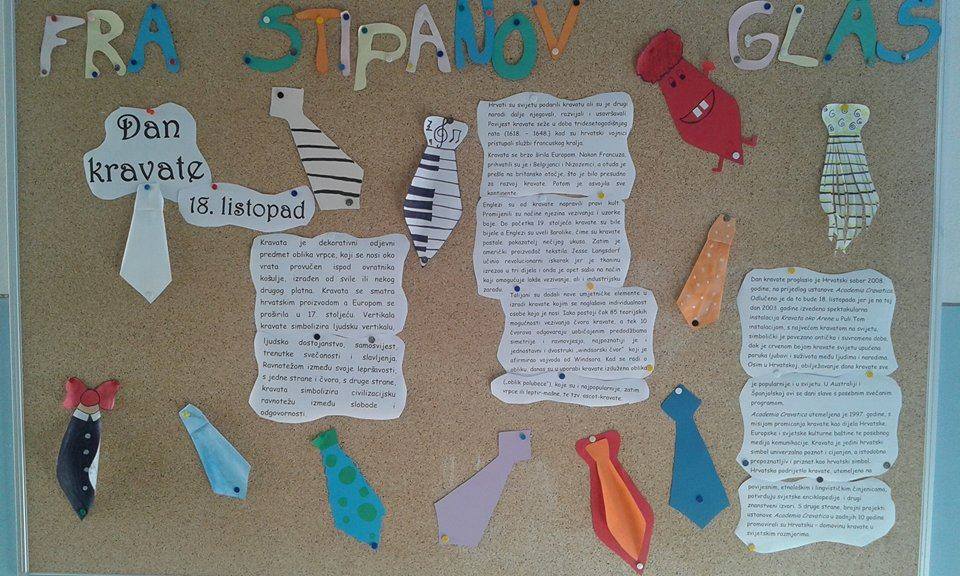 FRA STIPANOV GLAS
Dan
kravate
18. listopad
Kravata je dekorativni odjevni
predmet oblika vrpce, koji se nosi oko
vrata provučen ispod ovratnika
košulje, izrađen od svile ili nekog
drugog platna. Kravata se smatra
hrvatskim proizvodom a Europom se
proširila u 17. stoljeću. Vertikala
kravate simbolizira ljudsku vertikalu,
ljudsko dostojanstvo, samosvijest,
trenutke svečanosti i slavljenja.
Ravnotežom između svoje lepršivosti,
s jedne strane i čvora, s druge strane,
kravata simbolizira civilizacijsku
ravnotežu između slobode i
odgovornosti.
Hrvati su svijetu podarili kravatu ali su je drugi
narodi dalje njegovali, razvijali i usavršavali.
Povijest kravate seže u doba tridesetogodišnjeg
rata (1618. - 1648.) kad su hrvatski vojnici
pristupali službi francuskog kralja.
Kravata se brzo širila Europom. Nakon Francuza,
prihvatili su je i Belgijanci i Nizozemci, a otuda je
prešla na britansko otočje, što je bilo presudno
za razvoj kravate. Potom je osvojila sve
kontinente.
Englezi su od kravate napravili pravi kult.
Promijenili su načine njezina vezivanja i uzorke
boje. Do početka 19. stoljeća kravate su bile
bijele a Englezi su uveli šarolike, čime su kravate
postale pokazatelj nečijeg ukusa. Zatim je
američki proizvođač tekstila Jesse Langsdorf
učinio revolucionarni iskorak jer je tkaninu
izrezao u tri dijela i onda je opet sašio na način
koji omogućuje lakše vezivanje, ali i industrijsku
izradu.
Talijani su dodali nove umjetničke elemente u
izradi kravate kojim se naglašava individualnost
osobe koja je nosi. Iako postoji čak 85 teorijskih
mogućnosti vezivanja čvora kravate, a tek 10
čvorova odgovaraju uobičajenim predodžbama
simetrije i ravnoteže, najpoznatiji je
jednostavni i dvostruki „windsorski čvor" koji je
afirmirao vojvoda od Windsora. Kad se radi o
obliku, danas su u uporabi kravate izdužena oblika
("oblik palubece"), koje su i najpopularnije, zatim
vrpce ili leptir-mašne, te tzv. ascot-kravate.
Dan kravate proglasio je Hrvatski sabor 2008.
godine, na prijedlog ustanove Academia Cravatica.
Odlučeno je da to bude 18. listopada jer je na taj
dan 2003. godine izvedena spektakularna
instalacija Kravata oko Arene u Puli. Tom
instalacijom, s najvećom kravatom na svijetu,
simbolički je povezano antičko i suvremeno doba,
dok je crvenom bojom kravate svijetu upućena
poruka ljubavi i suživota među ljudima i narodima.
Osim u Hrvatskoj, obilježavanje dana kravate sve
je popularnije i u svijetu. U Australiji i
Španjolskoj ovi se dani slave s posebnim svečanim
programom.
Academia Cravatica utemeljena je 1997. godine, s
misijom promicanja kravate kao dijela Hrvatske,
Europske i svjetske kulturne baštine te posebnog
medija komunikacije. Kravata je jedini hrvatski
simbol univerzalno poznat i cijenjen, a istodobno
prepoznatljiv i priznat kao hrvatski simbol.
Hrvatsko podrijetlo kravate, utemeljeno na
povijesnim, etnološkim i lingvističkim činjenicama,
potvrđuju svjetske enciklopedije i drugi
znanstveni izvori. S druge strane, brojni projekti
ustanove Academia Cravatica u zadnjih 10 godina
promovirali su Hrvatsku - domovinu kravate u
svjetskim razmjerima.